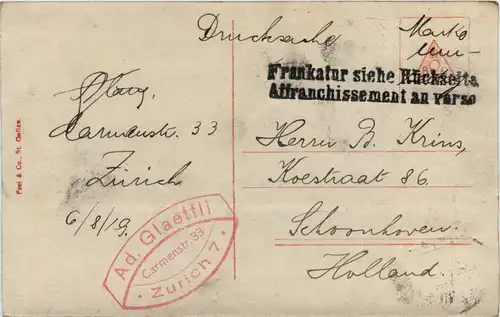 Drucksache
Marke
Frankatur siehe Rückseite
Affranchissement au verso
Carmenstr. 33
Zürich
6/8/19.
Ad. Glaettli
Carmenstr. 33
Zürich 7
Herrn B. Krins,
Koestraat 86.
Schoonhoven.
Holland.
Frei & Co., St. Gallen.